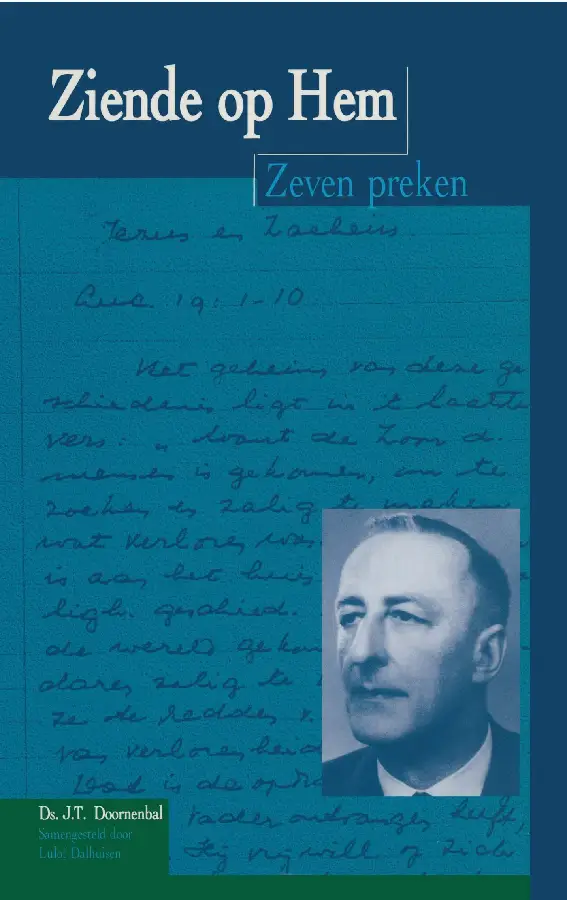 Ziende op Hem
Zeven preken
Jezus en Zacheus.
Luc 19: 1-10
Het geheim van deze ge
schiedenis ligt in 't laatste
vers: „ Want de Zoon d.
mensen is gekomen, om te
zoeken en zalig te maken
wat verloren was
is aan het huis
ligh. geschied.
de wereld gekom
zalig te
ze te redden v.
van verlorenheid
Dad is de opdra
Vader ontvangen heeft,
Hij vrijwill of zich
Ds. J.T. Doornenbal
Samengesteld door
Lulof Dalhuisen